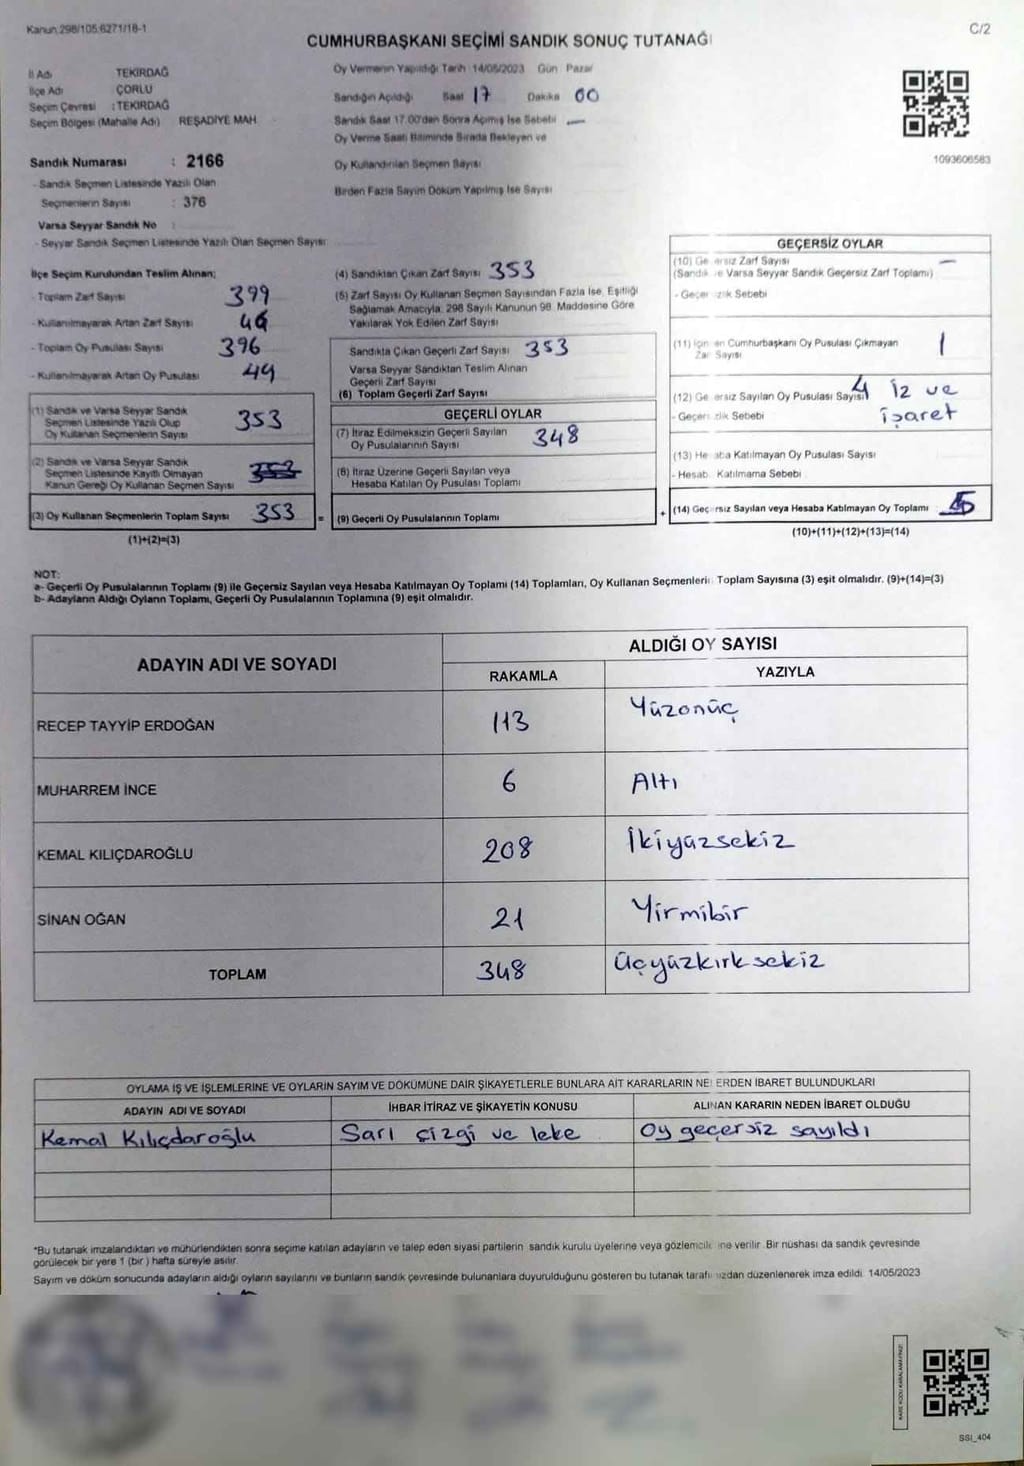 Kanun:298/105;6271/18-1
C/2
CUMHURBAŞKANI SEÇİMİ SANDIK SONUÇ TUTANAĞI
İl Adı TEKİRDAĞ
İlçe Adı ÇORLU
Seçim Çevresi : TEKİRDAĞ
Seçim Bölgesi (Mahalle Adı) REŞADİYE MAH.
Sandık Numarası : 2166
- Sandık Seçmen Listesinde Yazılı Olan
Seçmenlerin Sayısı : 376
Varsa Seyyar Sandık No :
- Seyyar Sandık Seçmen Listesinde Yazılı Olan Seçmen Sayısı:
Oy Vermenin Yapıldığı Tarih 14/05/2023 Gün Pazar
Sandığın Açıldığı Saat 17 Dakika 00
Sandık Saat 17.00'den Sonra Açılmış İse Sebebi —
Oy Verme Saati Bitiminde Sırada Bekleyen ve
Oy Kullandırılan Seçmen Sayısı
Birden Fazla Sayım Döküm Yapılmış İse Sayısı
1093606583
İlçe Seçim Kurulundan Teslim Alınan;
- Toplam Zarf Sayısı 399
- Kullanılmayarak Artan Zarf Sayısı 46
- Toplam Oy Pusulası Sayısı 396
- Kullanılmayarak Artan Oy Pusulası
(1) Sandık ve Varsa Seyyar Sandık
Seçmen Listesinde Yazılı Olup
Oy Kullanan Seçmenlerin Sayısı 353
(2) Sandık ve Varsa Seyyar Sandık
Seçmen Listesinde Kayıtlı Olmayan
Kanun Gereği Oy Kullanan Seçmen Sayısı
(3) Oy Kullanan Seçmenlerin Toplam Sayısı 353
(1)+(2)=(3)
(4) Sandıktan Çıkan Zarf Sayısı 353
(5) Zarf Sayısı Oy Kullanan Seçmen Sayısından Fazla İse, Eşitliği
Sağlamak Amacıyla, 298 Sayılı Kanunun 98. Maddesine Göre
Yakılarak Yok Edilen Zarf Sayısı
Sandıkta Çıkan Geçerli Zarf Sayısı 353
Varsa Seyyar Sandıktan Teslim Alınan
Geçerli Zarf Sayısı
(6) Toplam Geçerli Zarf Sayısı
GEÇERLİ OYLAR
(7) İtiraz Edilmeksizin Geçerli Sayılan
Oy Pusulalarının Sayısı 348
(8) İtiraz Üzerine Geçerli Sayılan veya
Hesaba Katılan Oy Pusulası Toplamı
= (9) Geçerli Oy Pusulalarının Toplamı
GEÇERSİZ OYLAR
(10) Geçersiz Zarf Sayısı —
(Sandık ve Varsa Seyyar Sandık Geçersiz Zarf Toplamı)
- Geçersizlik Sebebi
(11) İçinden Cumhurbaşkanı Oy Pusulası Çıkmayan
Zarf Sayısı 1
(12) Geçersiz Sayılan Oy Pusulası Sayısı 4 iz ve
- Geçersizlik Sebebi işaret
(13) Hesaba Katılmayan Oy Pusulası Sayısı
- Hesaba Katılmama Sebebi
+ (14) Geçersiz Sayılan veya Hesaba Katılmayan Oy Toplamı 5
(10)+(11)+(12)+(13)=(14)
NOT:
a- Geçerli Oy Pusulalarının Toplamı (9) ile Geçersiz Sayılan veya Hesaba Katılmayan Oy Toplamı (14) Toplamları, Oy Kullanan Seçmenlerin Toplam Sayısına (3) eşit olmalıdır. (9)+(14)=(3)
b- Adayların Aldığı Oyların Toplamı, Geçerli Oy Pusulalarının Toplamına (9) eşit olmalıdır.
ADAYIN ADI VE SOYADI
ALDIĞI OY SAYISI
RAKAMLA YAZIYLA
RECEP TAYYİP ERDOĞAN 113 Yüzonüç
MUHARREM İNCE 6 Altı
KEMAL KILIÇDAROĞLU 208 İkiyüzsekiz
SİNAN OĞAN 21 Yirmibir
TOPLAM 348 Üçyüzkırksekiz
OYLAMA İŞ VE İŞLEMLERİNE VE OYLARIN SAYIM VE DÖKÜMÜNE DAİR ŞİKAYETLERLE BUNLARA AİT KARARLARIN NELERDEN İBARET BULUNDUKLARI
ADAYIN ADI VE SOYADI İHBAR İTİRAZ VE ŞİKAYETİN KONUSU ALINAN KARARIN NEDEN İBARET OLDUĞU
Kemal Kılıçdaroğlu Sarı çizgi ve leke Oy geçersiz sayıldı
*Bu tutanak imzalandıktan ve mühürlendikten sonra seçime katılan adayların ve talep eden siyasi partilerin sandık kurulu üyelerine veya gözlemcilerine verilir. Bir nüshası da sandık çevresinde
görülecek bir yere 1 (bir) hafta süreyle asılır.
Sayım ve döküm sonucunda adayların aldığı oyların sayılarını ve bunların sandık çevresinde bulunanlara duyurulduğunu gösteren bu tutanak tarafımızdan düzenlenerek imza edildi. 14/05/2023
KARE KODU KARALAMAYINIZ!
SSI_404